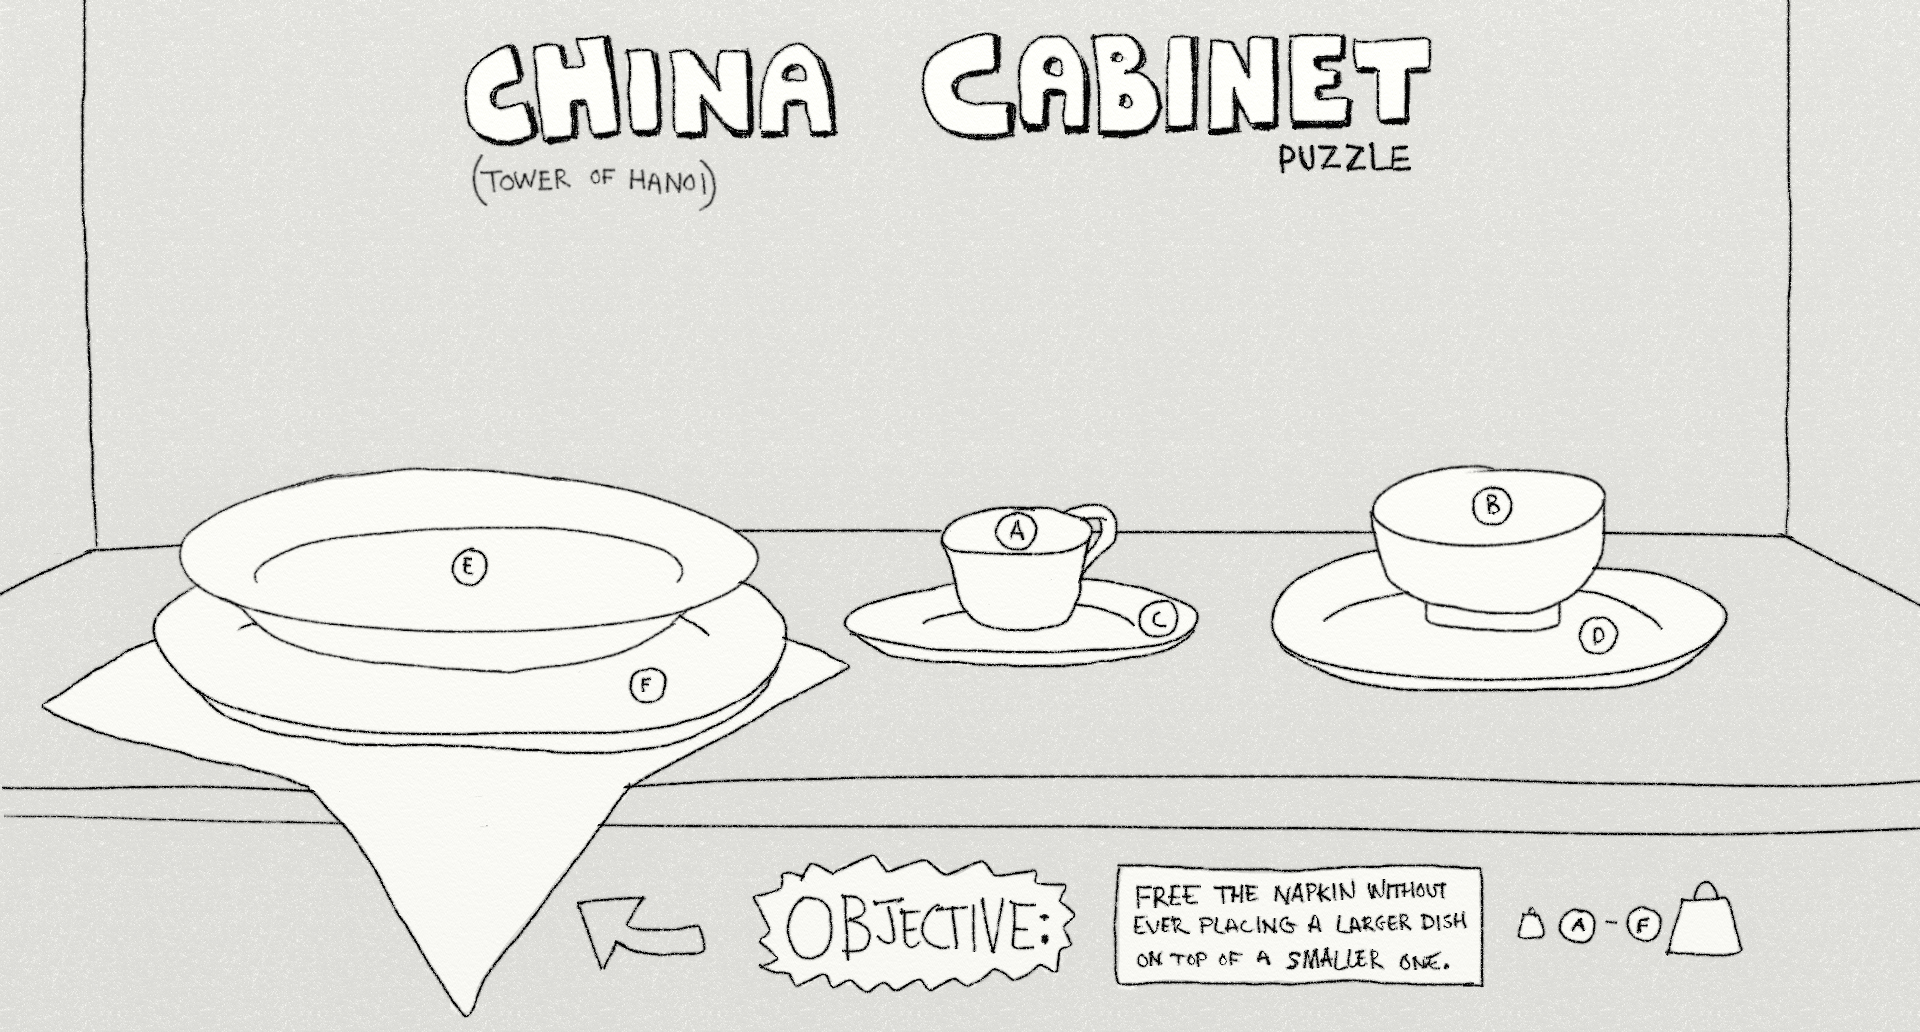 CHINA CABINET
PUZZLE
(TOWER OF HANOI)
E
A
B
C
D
F
OBJECTIVE:
FREE THE NAPKIN WITHOUT
EVER PLACING A LARGER DISH
ON TOP OF A SMALLER ONE.
A - F